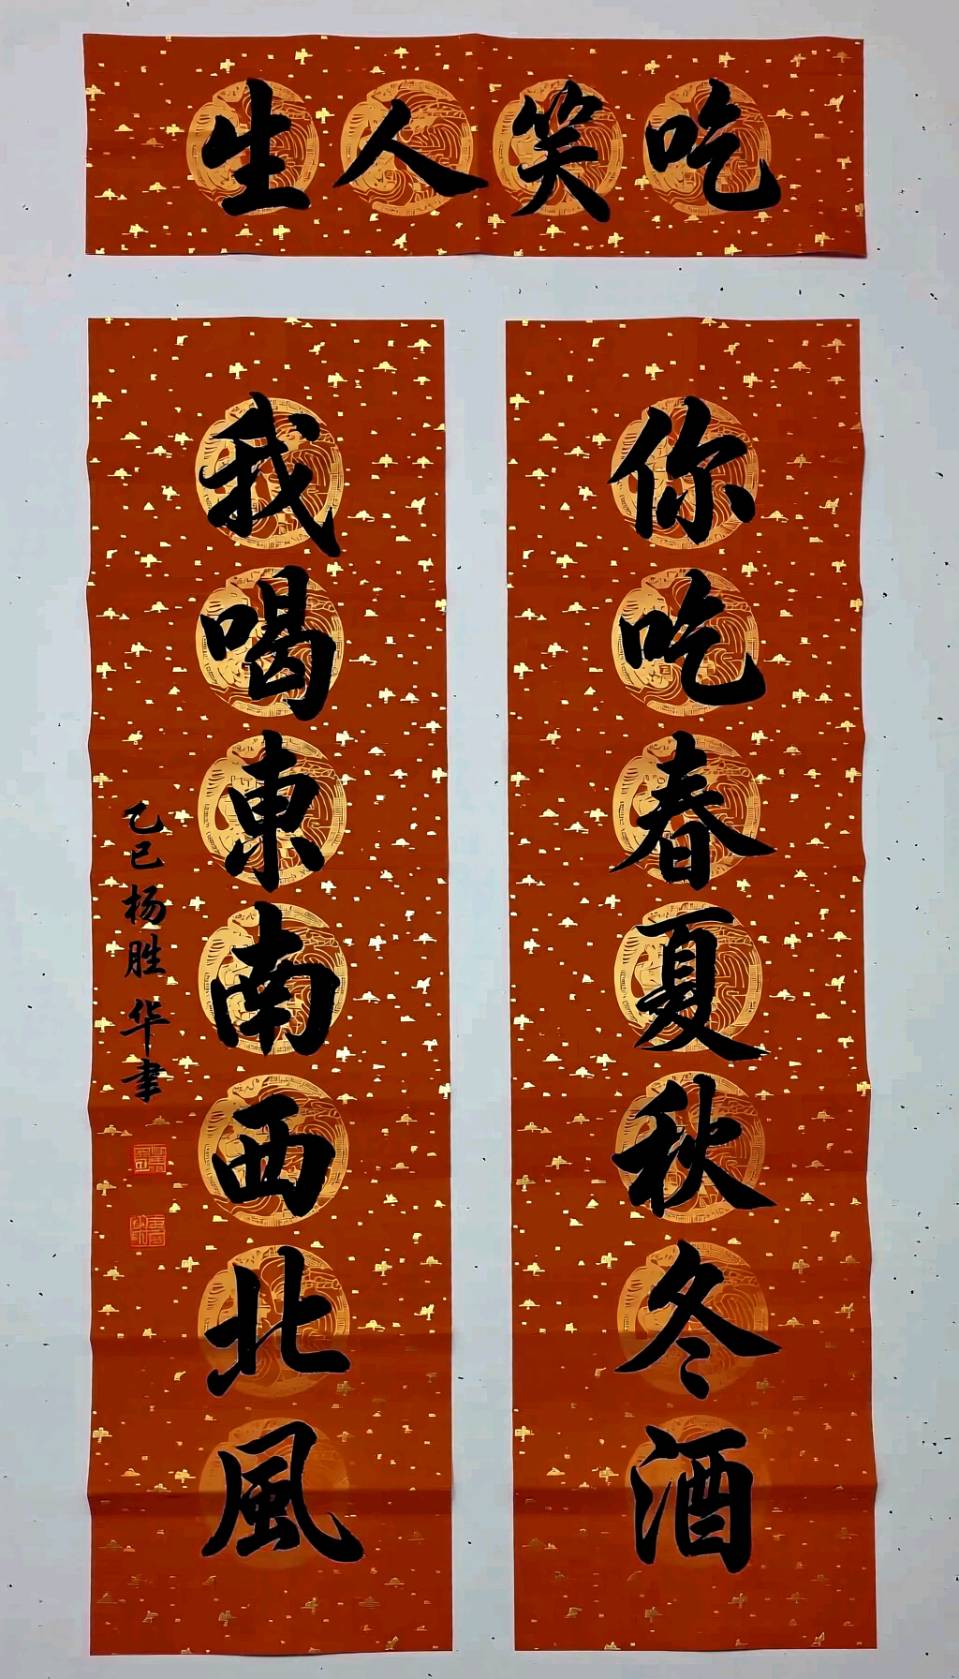 吃笑人生
你吃春夏秋冬酒
我喝東南西北風
乙巳杨胜华書